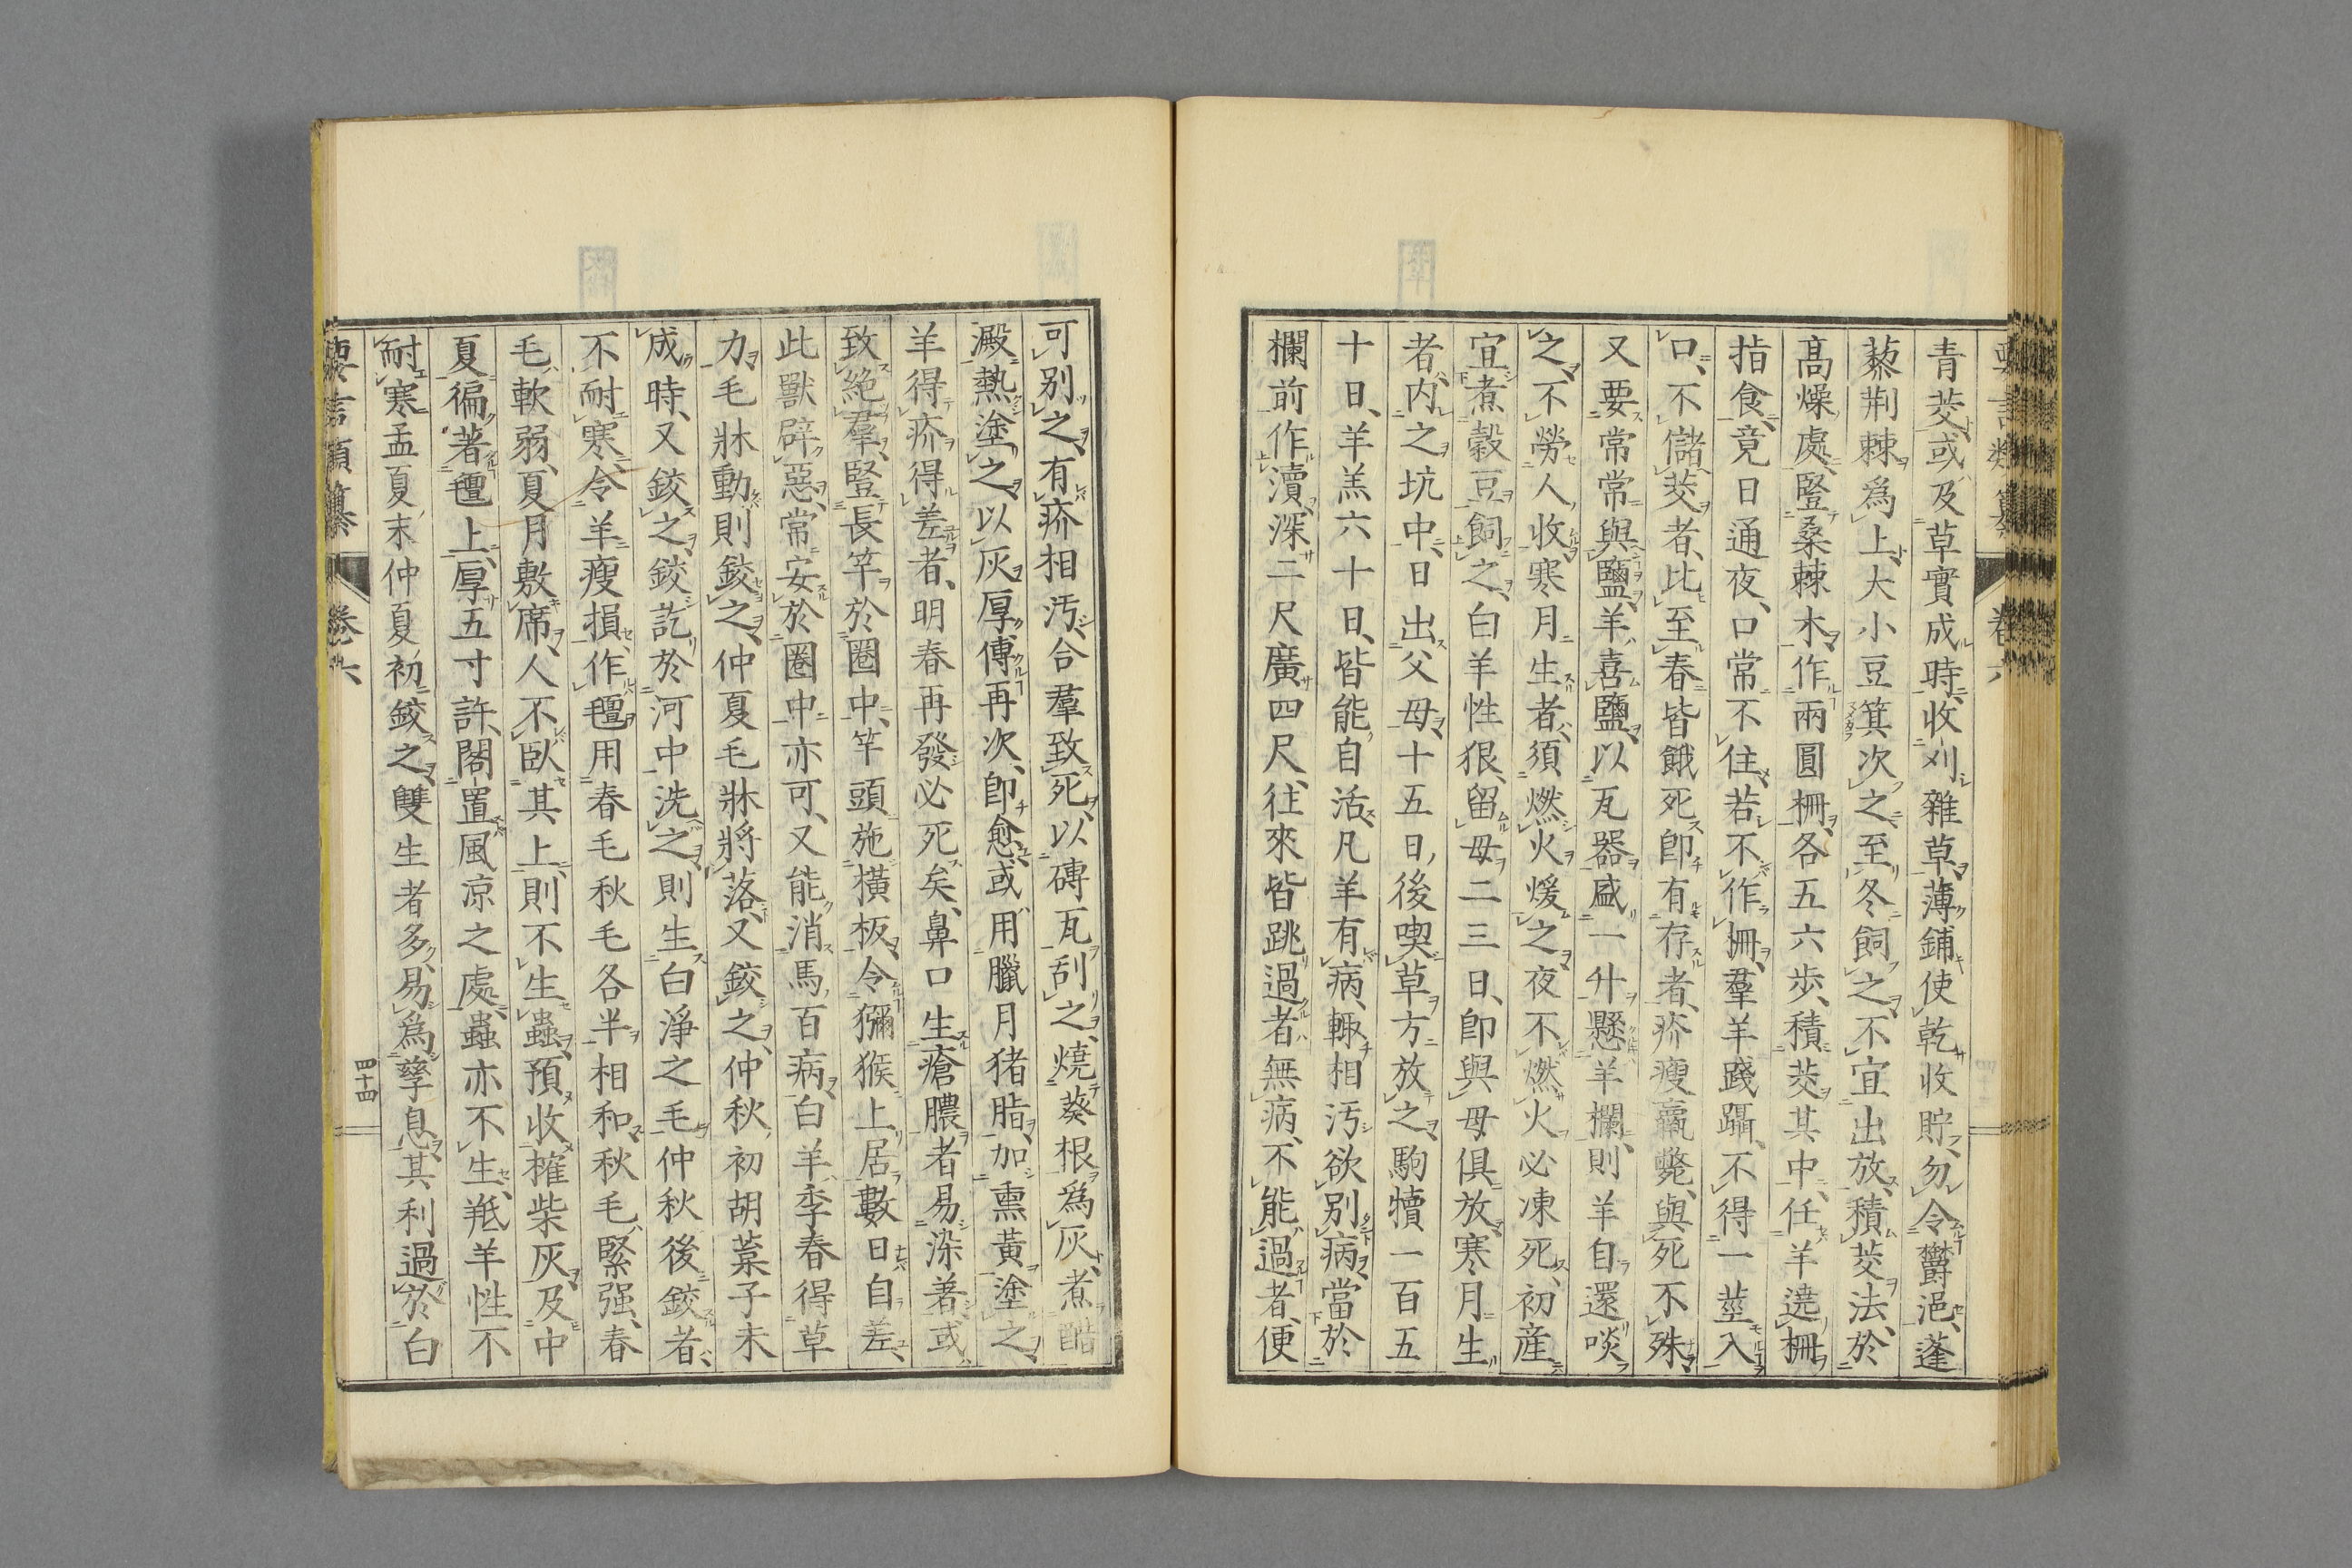 青茭或及草實成時收刈雜草薄鋪使乾收貯勿令鬱浥蓬
藜荆棘爲上大小豆箕次之至冬飼之不宜出放積茭法於
高燥處竪桑棘木作兩圓柵各五六步積茭其中任羊遶柵
指食竟日通夜口常不住若不作柵羣羊踐躡不得一莖入
口不儲茭者比至春皆餓死卽有存者疥瘦羸斃與死不殊
又要常常與鹽羊喜鹽以瓦器盛一升懸羊欄則羊自還啖
之不勞人收寒月生者須燃火煖之夜不燃火必凍死初産
宜煮穀豆飼之白羊性狠留母二三日卽與母俱放寒月生
者内之坑中日出父母十五日後喫草方放之駒犢一百五
十日羊羔六十日皆能自活凡羊有病輙相汚欲別病當於
欄前作瀆深二尺廣四尺往來皆跳過者無病不能過者便
可別之有疥相汚合羣致死以磚瓦刮之燒葵根爲灰煮醋
澱熱塗之以灰厚傅再次卽愈或用臘月猪脂加熏黃塗之
羊得疥得差者明春再發必死矣鼻口生瘡膿者易染著或
致絶羣竪長竿於圈中竿頭施橫板令獼猴上居數日自差
此獸辟惡常安於圈中亦可又能消馬百病白羊季春得草
力毛牀動則鉸之仲夏毛牀將落又鉸之仲秋初胡葈子未
成時又鉸之鉸訖於河中洗之則生白淨之毛仲秋後鉸者
不耐寒令羊瘦損作氊用春毛秋毛各半相和秋毛緊强春
毛軟弱夏月敷席人不臥其上則不生蟲預收㩁柴灰及中
夏徧著氊上厚五寸許閣置風涼之處蟲亦不生羝羊性不
耐寒孟夏末仲夏初鉸之雙生者多易爲孳息其利過於白
要言類纂 卷六 四十四